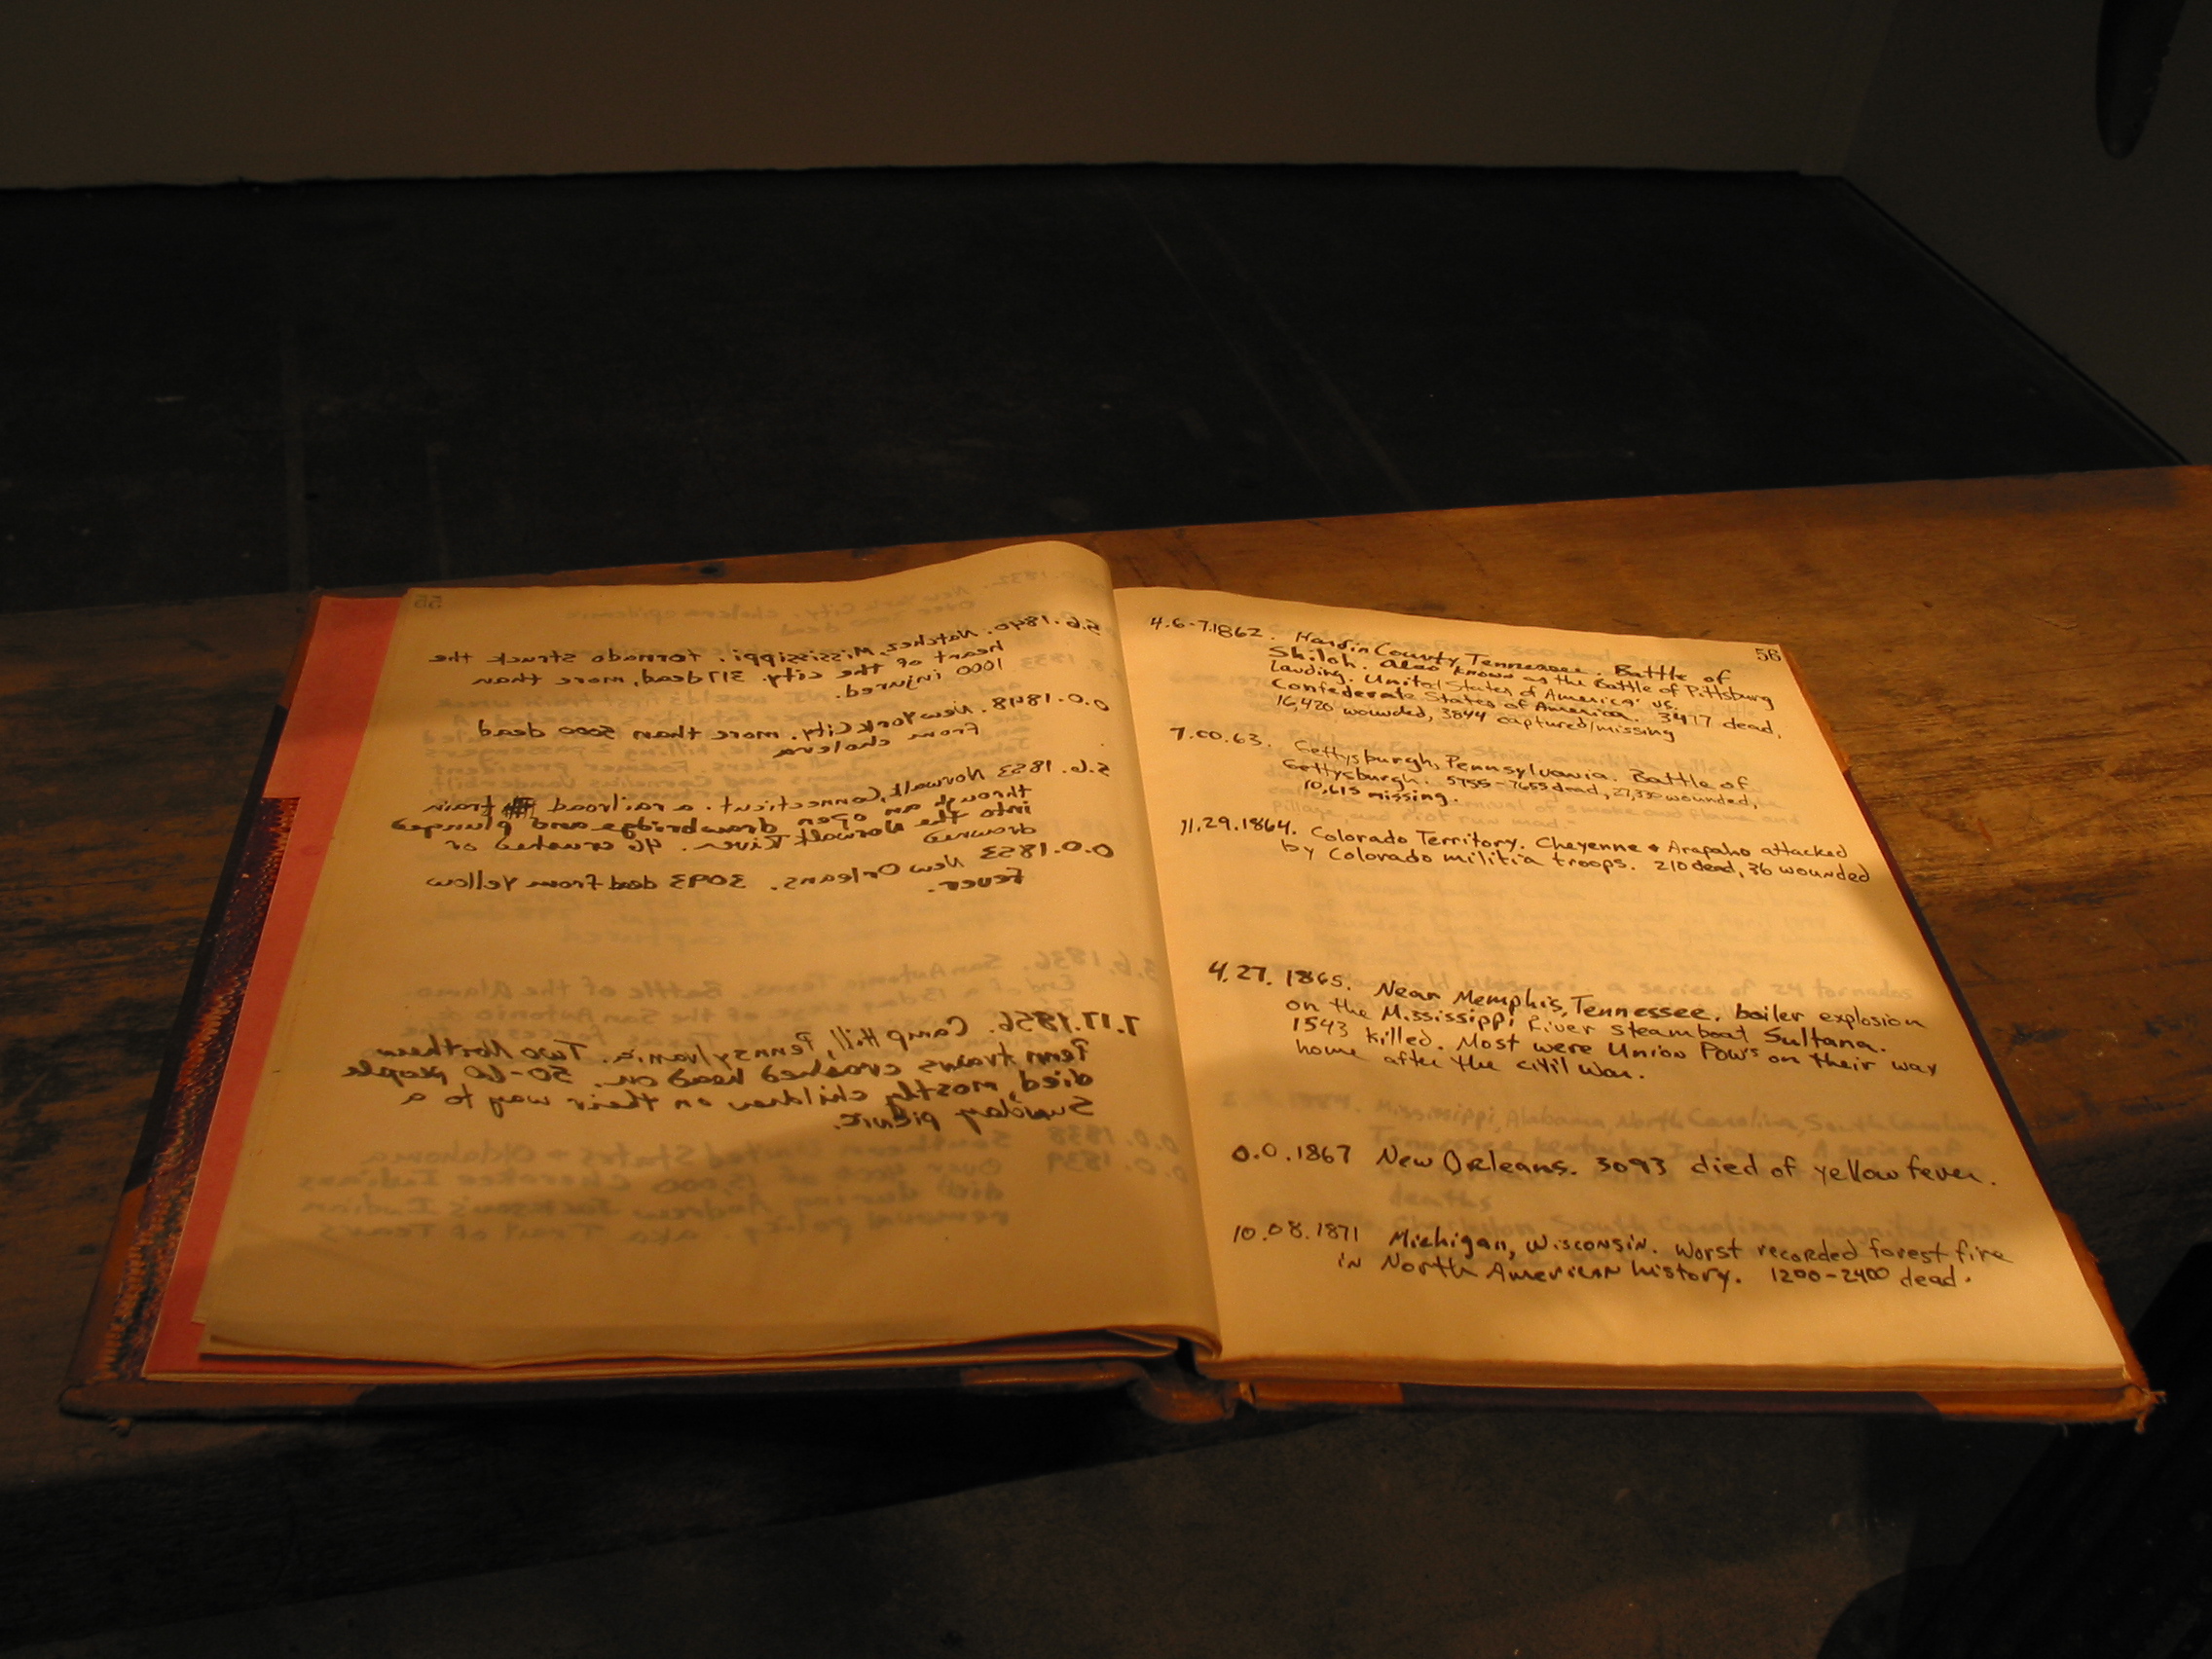 55
5.6.1840. Natchez, Mississippi. Tornado struck the
heart of the city. 317 dead, more than
1000 injured.
0.0.1848. New York City. more than 5000 dead
from cholera
5.6.1853 Norwalk, Connecticut. a railroad train
through an open drawbridge and plunged
into the Norwalk River. 46 crushed or
drowned
0.0.1853 New Orleans. 3093 dead from Yellow
fever.
7.17.1856. Camp Hill, Pennsylvania. Two Northern
Penn trains crashed head on. 50-60 people
died, mostly children on their way to a
Sunday picnic.
56
4.6-7.1862. Hardin County, Tennessee. Battle of
Shiloh. Also known as the Battle of Pittsburg
Landing. United States of America vs.
Confederate States of America. 3477 dead,
16,420 wounded, 3844 captured/missing
7.00.63. Gettysburgh, Pennsylvania. Battle of
Gettysburgh. 5755-7655 dead, 27,330 wounded,
10,615 missing.
11.29.1864. Colorado Territory. Cheyenne + Arapaho attacked
by Colorado militia troops. 210 dead, 36 wounded
4.27.1865. Near Memphis, Tennessee. boiler explosion
on the Mississippi River steamboat Sultana.
1543 killed. Most were Union POW's on their way
home after the civil war.
0.0.1867 New Orleans. 3093 died of yellow fever.
10.08.1871 Michigan, Wisconsin. Worst recorded forest fire
in North American history. 1200-2400 dead.